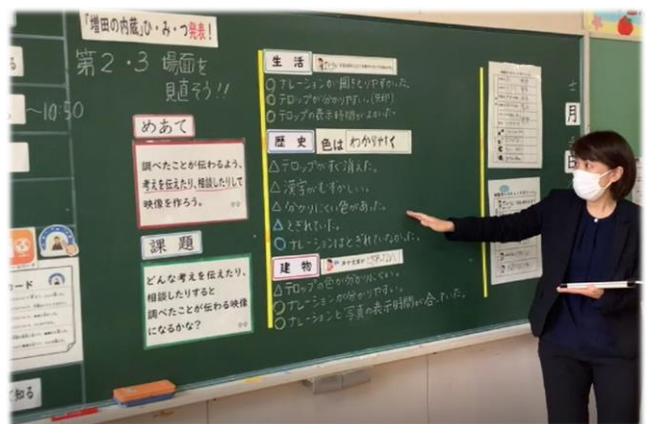 「増田の内蔵」ひ・み・つ発表!
第2・3場面を
見直そう!!
~10:50
めあて
調べたことが伝わるよう、
考えを伝えたり、相談したりして
映像を作ろう。
課題
どんな考えを伝えたり、
相談したりすると
調べたことが伝わる映像
になるかな?
ード
で知る
生活
○ナレーションが聞きとりやすかった。
○テロップが分かりやすい。
○テロップの表示時間がよかった
歴史
色は わかりやすく
△テロップがすぐ消えた。
△漢字がむずかしい。
△分かりにくい色があった。
△とぎれていた。
○ナレーションはとぎれていなかった。
建物
△テロップの色が分かりにくい。
○ナレーションが分かりやすい。
○ナレーションと写真の表示時間が合っていた。
月
日